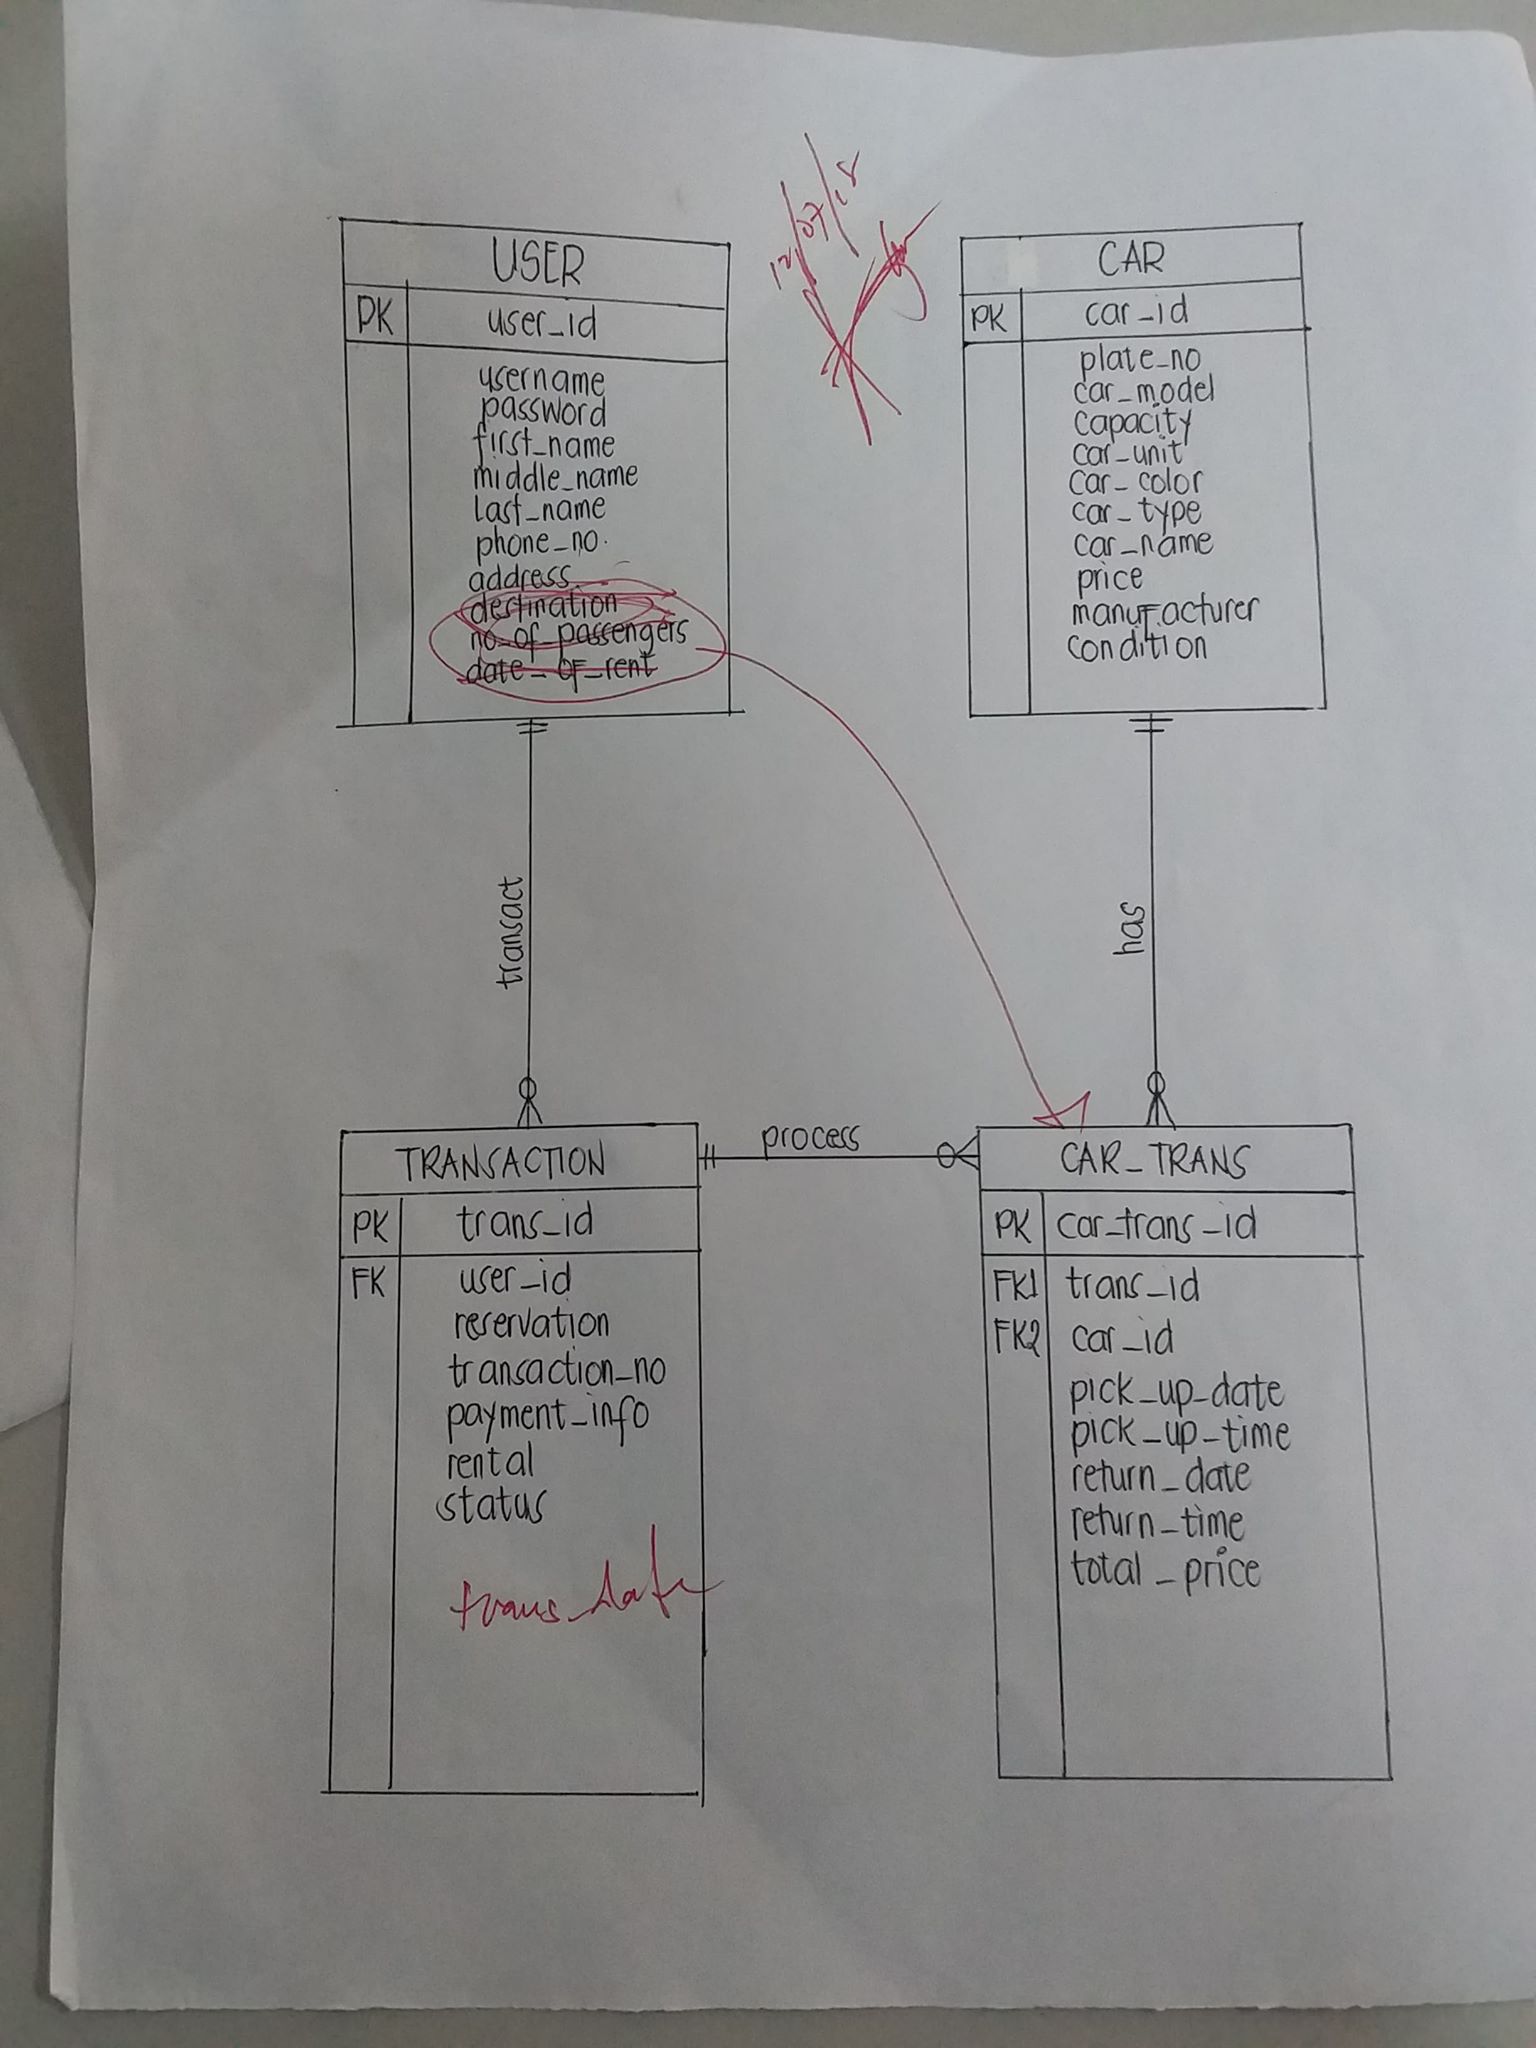 12/07/18
USER
PK user_id
username
password
first_name
middle_name
last_name
phone_no.
address
destination
no_of_passengers
date_of_rent
CAR
PK car_id
plate_no
car_model
capacity
car_unit
car_color
car_type
car_name
price
manufacturer
condition
transact
has
process
TRANSACTION
PK trans_id
FK user_id
reservation
transaction_no
payment_info
rental
status
trans_date
CAR_TRANS
PK car_trans_id
FK1 trans_id
FK2 car_id
pick_up_date
pick_up_time
return_date
return_time
total_price